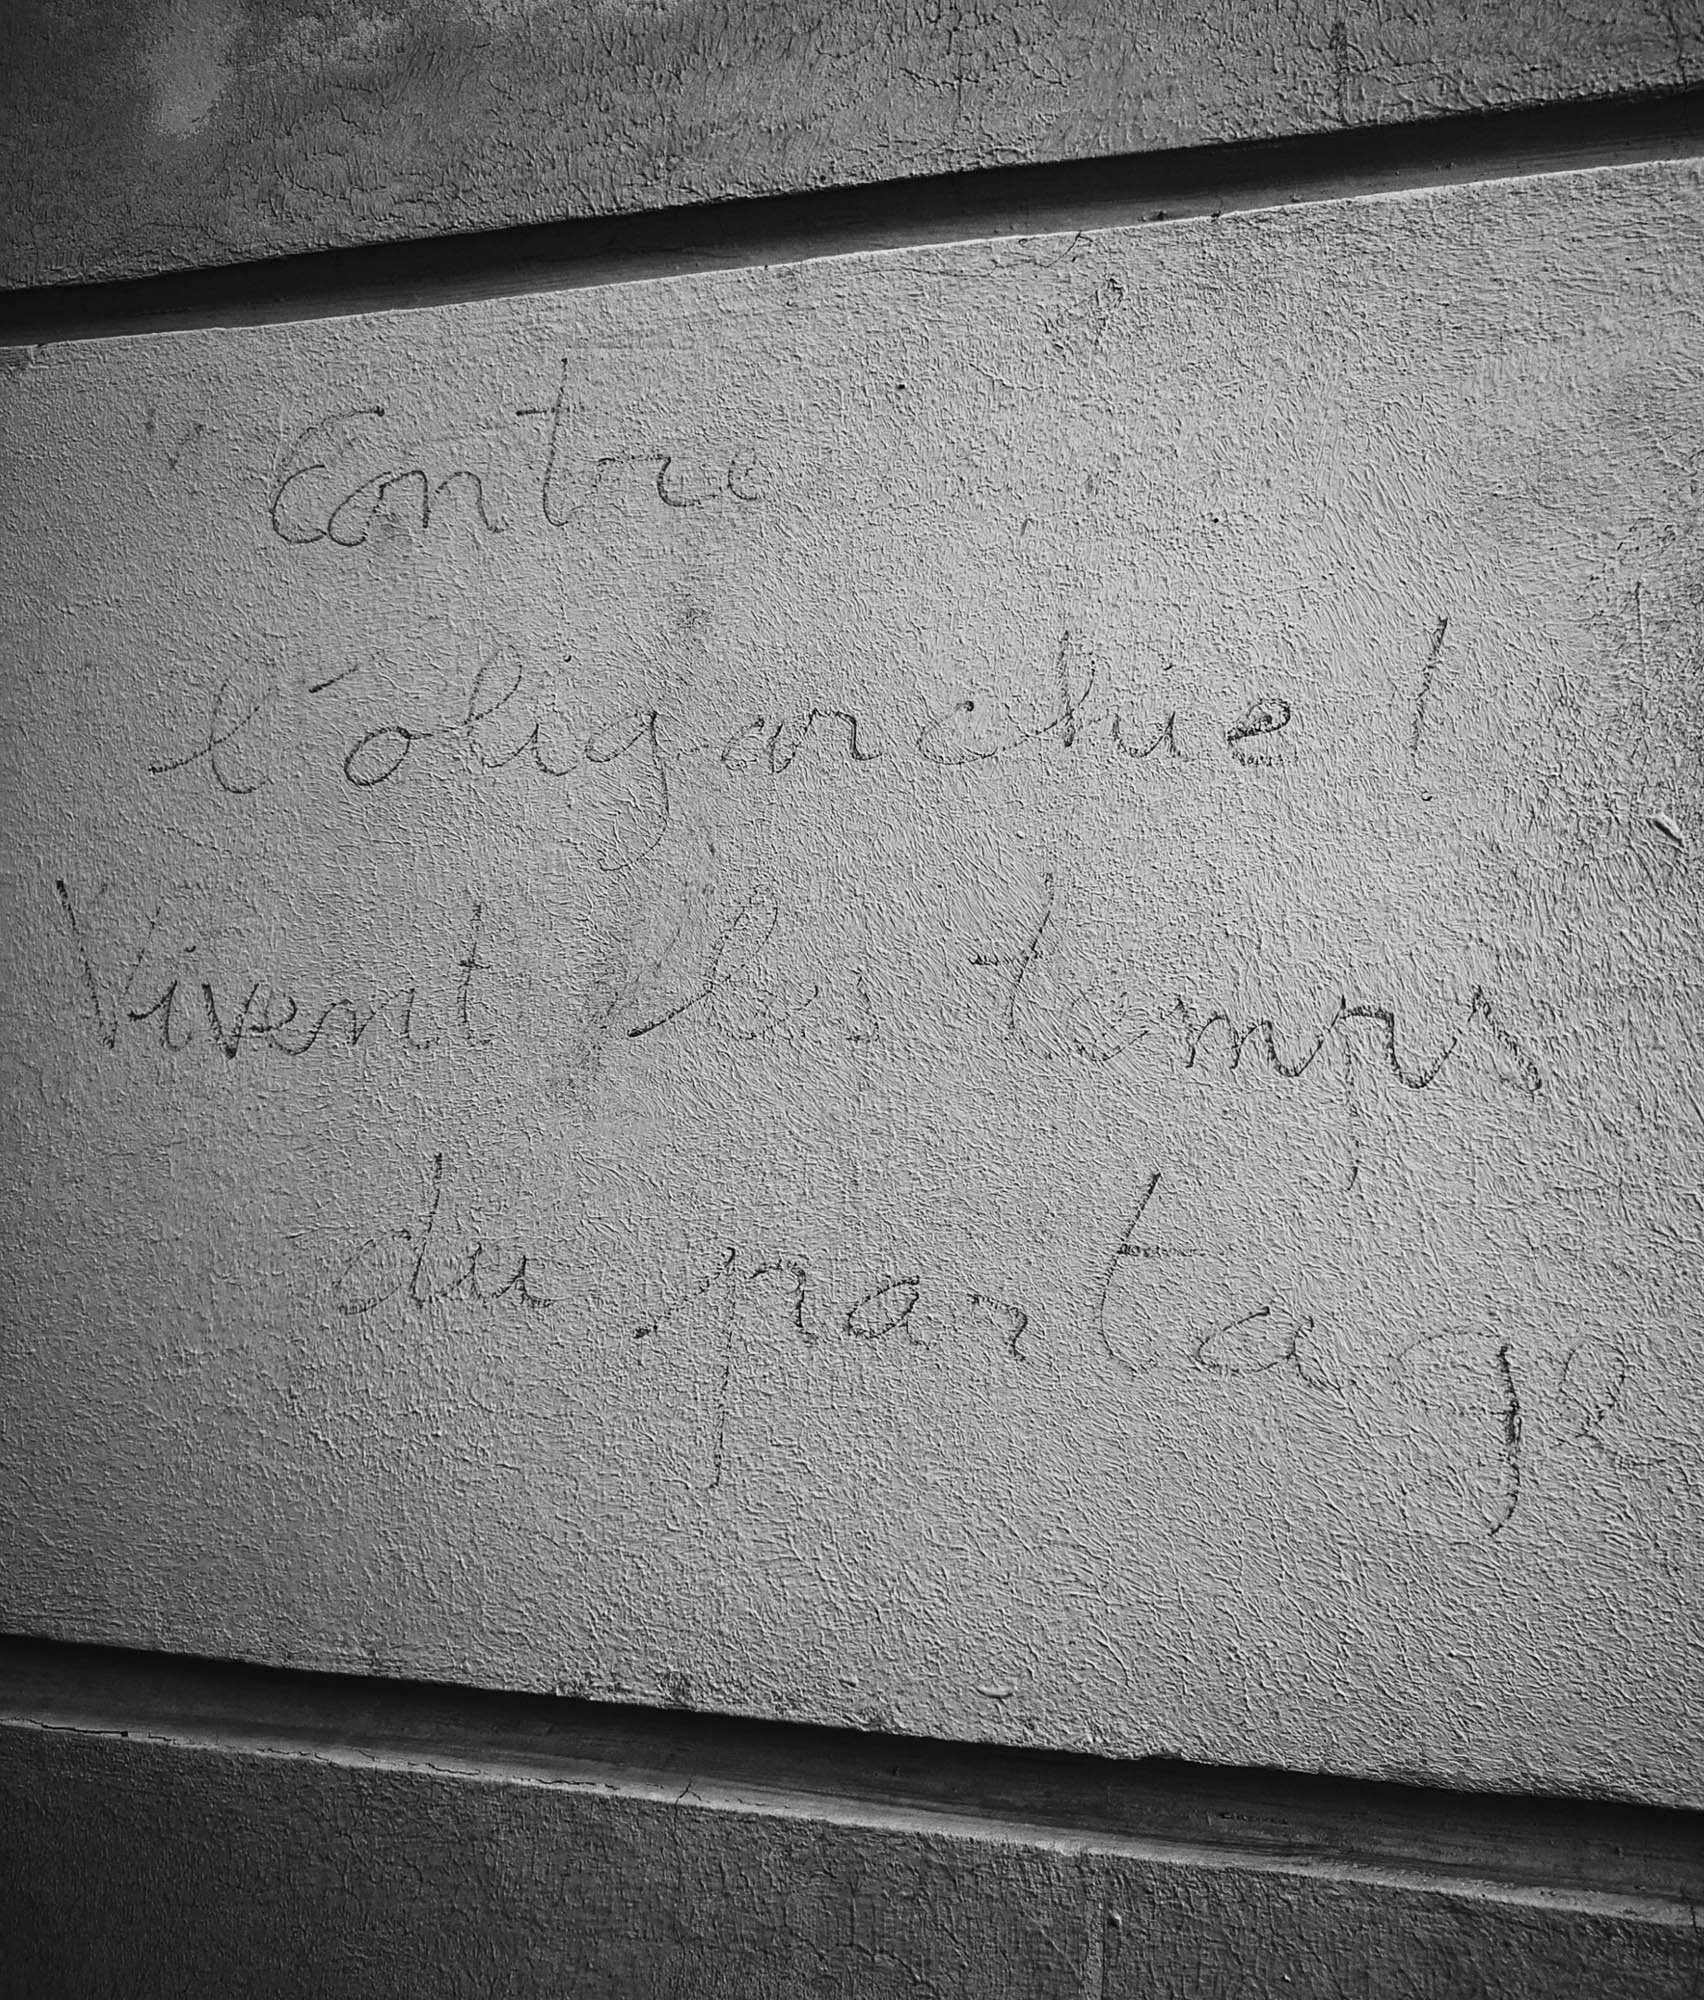 Contre
l'oligarchie !
Vivent les temps
du partage